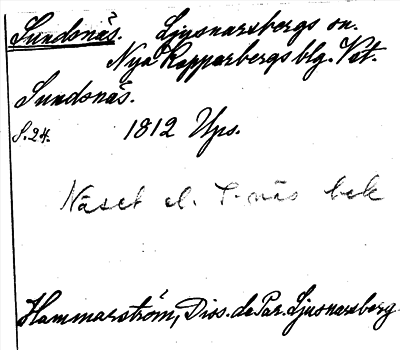 Sundonäs. Ljusnarsbergs sn.
Nya Kopparbergs blg. Vst.
Sundonäs.
S. 24. 1812 Ups.
Näset el. T-näs bek
Hammarström, Diss. de Par. Ljusnarsberg.